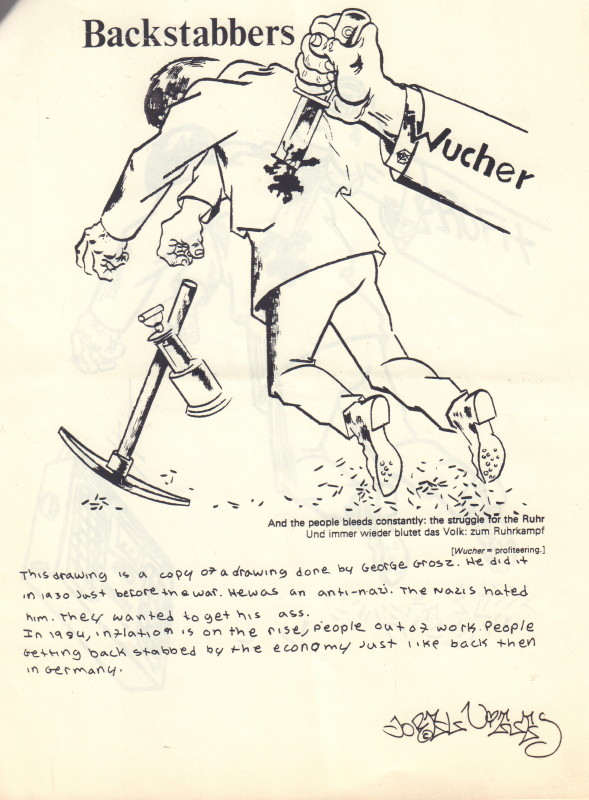 Backstabbers
Wucher
And the people bleeds constantly: the struggle for the Ruhr
Und immer wieder blutet das Volk: zum Ruhrkampf
[Wucher = profiteering.]
This drawing is a copy of a drawing done by George Grosz. He did it
in 1930 Just before the war. He was an anti-nazi. The Nazis hated
him. They wanted to get his ass.
In 1984, inflation is on the rise, people out of work. People
Getting back stabbed by the economy Just like back then
in Germany.